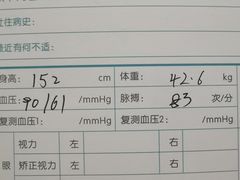 往病史:
最近有何不适:
身高: 152 cm 体重: 42.6 kg
血压: 90/61 /mmHg 脉搏: 83 次/分
复测血压1: /mmHg 复测血压2: /mmHg
眼 视力 左 右
矫正视力 左 右